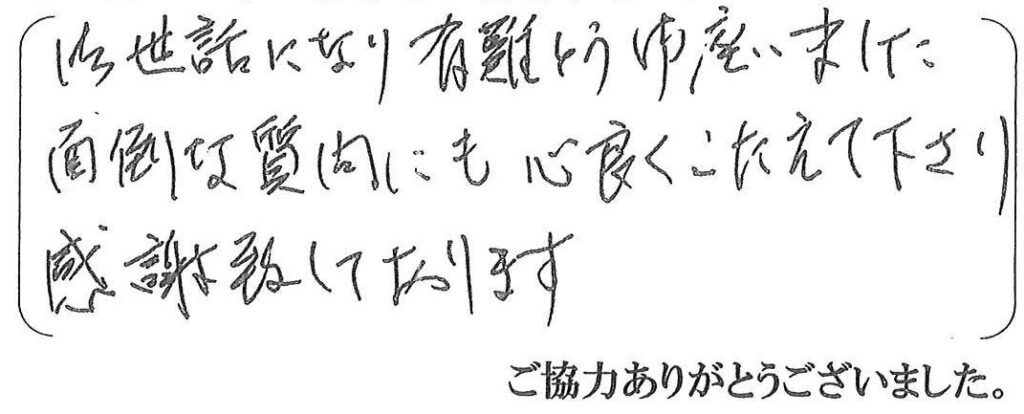 御世話になり有難とう御座いました
面倒な質問にも心良くこたえて下さり
感謝致しております
ご協力ありがとうございました。